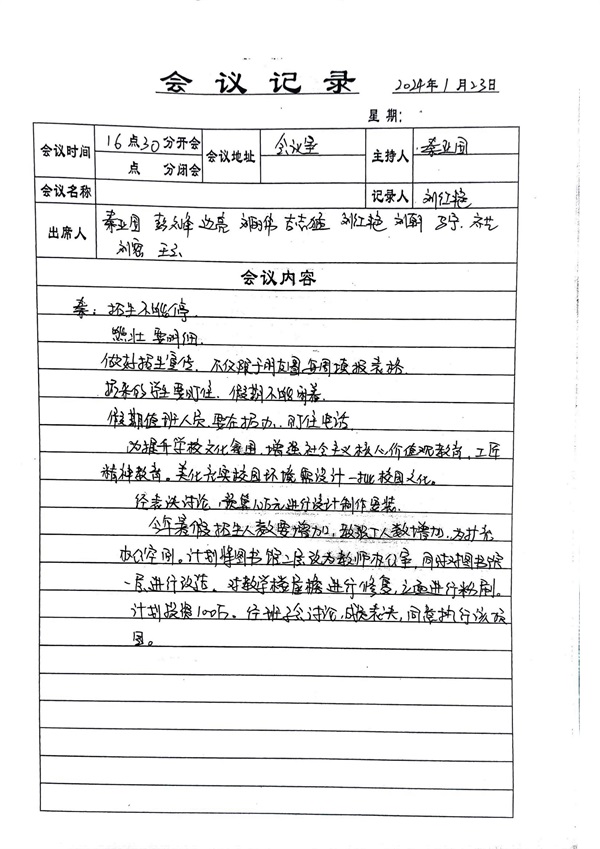 会议记录 2024年1月23日
星期:
会议时间 16点30分开会 会议地址 会议室 主持人 秦亚国
点 分闭会
会议名称 记录人 刘红艳
出席人 秦亚国 边亮 刘红艳
会议内容
秦:招生不能停。
要明细
做好招生宣传,不仅限于朋友圈每周填报表格。
招来的学生要盯住,假期不能闲着。
假期值班人员要在招办,盯住电话。
为提升学校文化氛围,增强社会主义核心价值观教育,工匠
精神教育。美化充实校园环境需设计一批校园文化。
经表决讨论,预算10万元进行设计制作安装。
今年暑假招生人数要增加,教职工人数增加,为扩充
办公空间。计划将图书馆二层改为教师办公室,同时对图书馆
一层进行改造。对教学楼屋檐进行修复,立面进行粉刷。
计划投资100万。经班子会讨论,成员表决,同意执行该项
目。